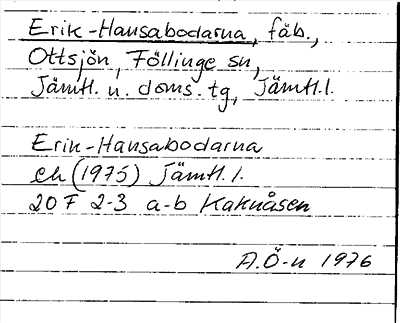 Erik-Hansabodarna, fäb.,
Ottsjön, Föllinge sn,
Jämtl. n. doms. tg, Jämtl. l.
Erik-Hansabodarna
ek (1975) Jämtl. l.
20 F 2-3 a-b Kaknåsen
A.Ö-n 1976